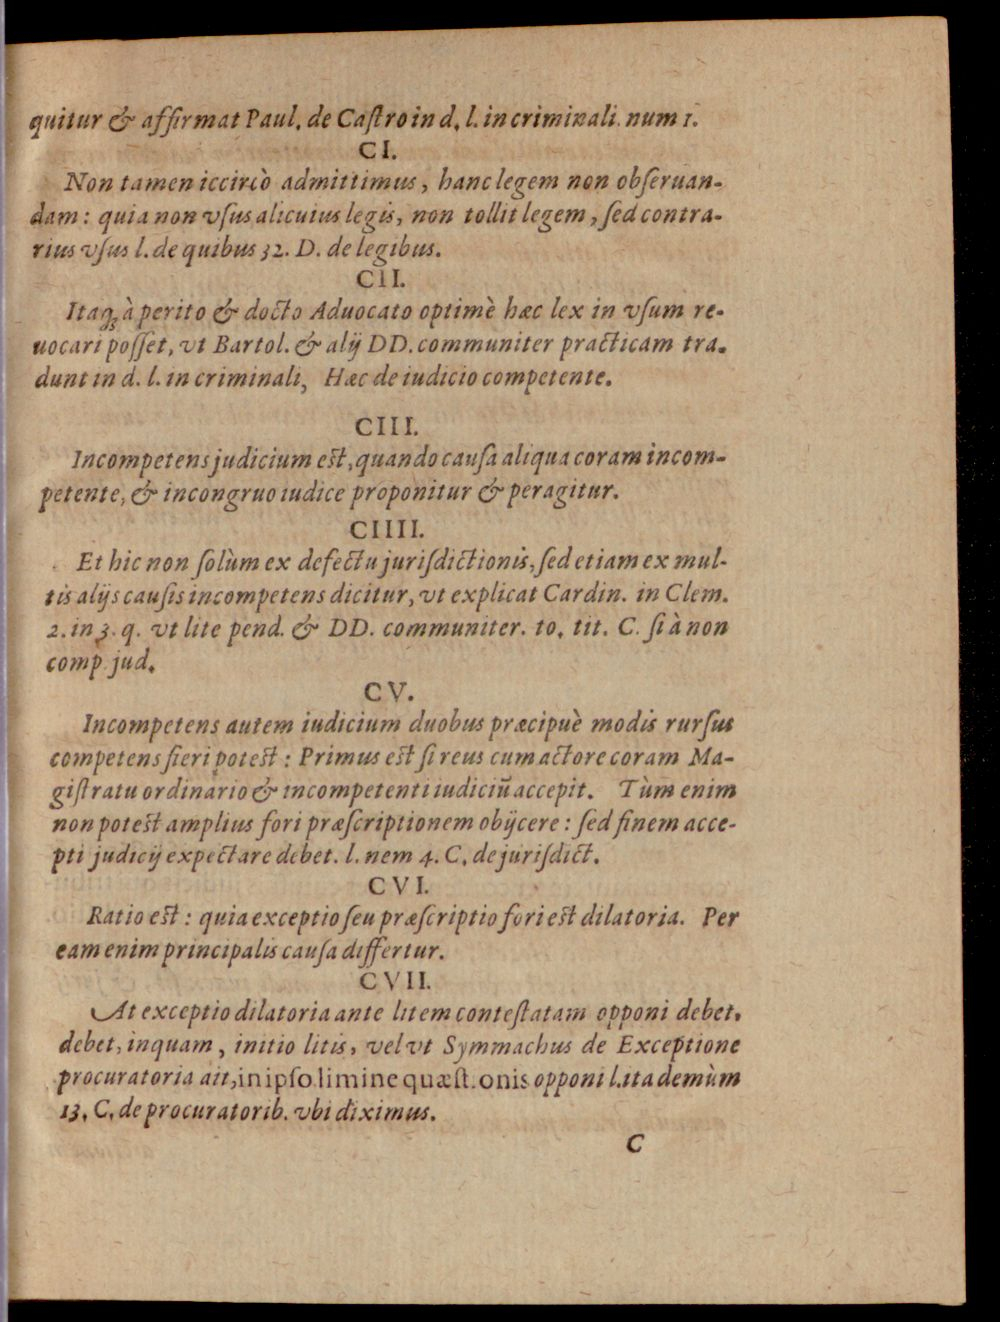 quitur & affirmat Paul. de Caſtro in d. l. in criminali. num 1.
CI.
Non tamen iccircò admittimus, hanc legem non obſeruan-
dam: quia non vſus alicuius legis, non tollit legem, ſed contra-
rius vſus l. de quibus 32. D. de legibus.
CII.
Itaq; à perito & docto Aduocato optimè hæc lex in vſum re-
uocari poſſet, vt Bartol. & alij DD. communiter practicam tra-
dunt in d. l. in criminali, Hæc de iudicio competente.
CIII.
Incompetens judicium est, quando cauſa aliqua coram incom-
petente, & incongruo iudice proponitur & peragitur.
CIIII.
Et hic non ſolùm ex defectu juriſdictionis, ſed etiam ex mul-
tis alijs cauſis incompetens dicitur, vt explicat Cardin. in Clem.
2. in 3. q. vt lite pend. & DD. communiter. to. tit. C. ſi à non
comp. jud.
CV.
Incompetens autem iudicium duobus præcipuè modis rurſus
competens fieri potest: Primus est ſi reus cum actore coram Ma-
giſtratu ordinario & incompetenti iudiciũ accepit. Tùm enim
non potest amplius fori præſcriptionem obijcere: ſed finem acce-
pti judicij expectare debet. l. nem 4. C. de juriſdict.
CVI.
Ratio est: quia exceptio ſeu præſcriptio fori est dilatoria. Per
eam enim principalis cauſa differtur.
CVII.
At exceptio dilatoria ante litem conteſtatam opponi debet.
debet, inquam, initio litis, vel vt Symmachus de Exceptione
procuratoria ait, in ipſo limine quæſt.onis opponi l. ita demùm
13. C. de procuratorib. vbi diximus.
C